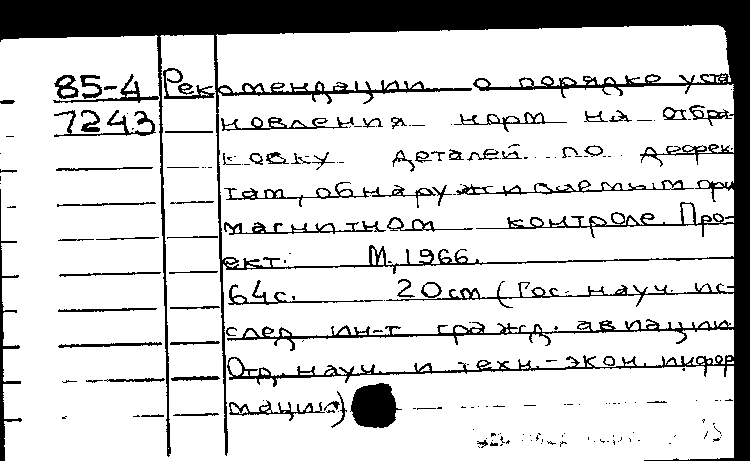 85-4 Рекомендации о порядке уста
7243 новления норм на отбра
ковку деталей по дефек
там, обнаруживаемым при
магнитном контроле. Про-
ект. М., 1966.
64с. 20см (Гос. науч. ис-
след. ин-т гражд. авиации.
Отд. науч. и техн.-экон. инфор
мации)